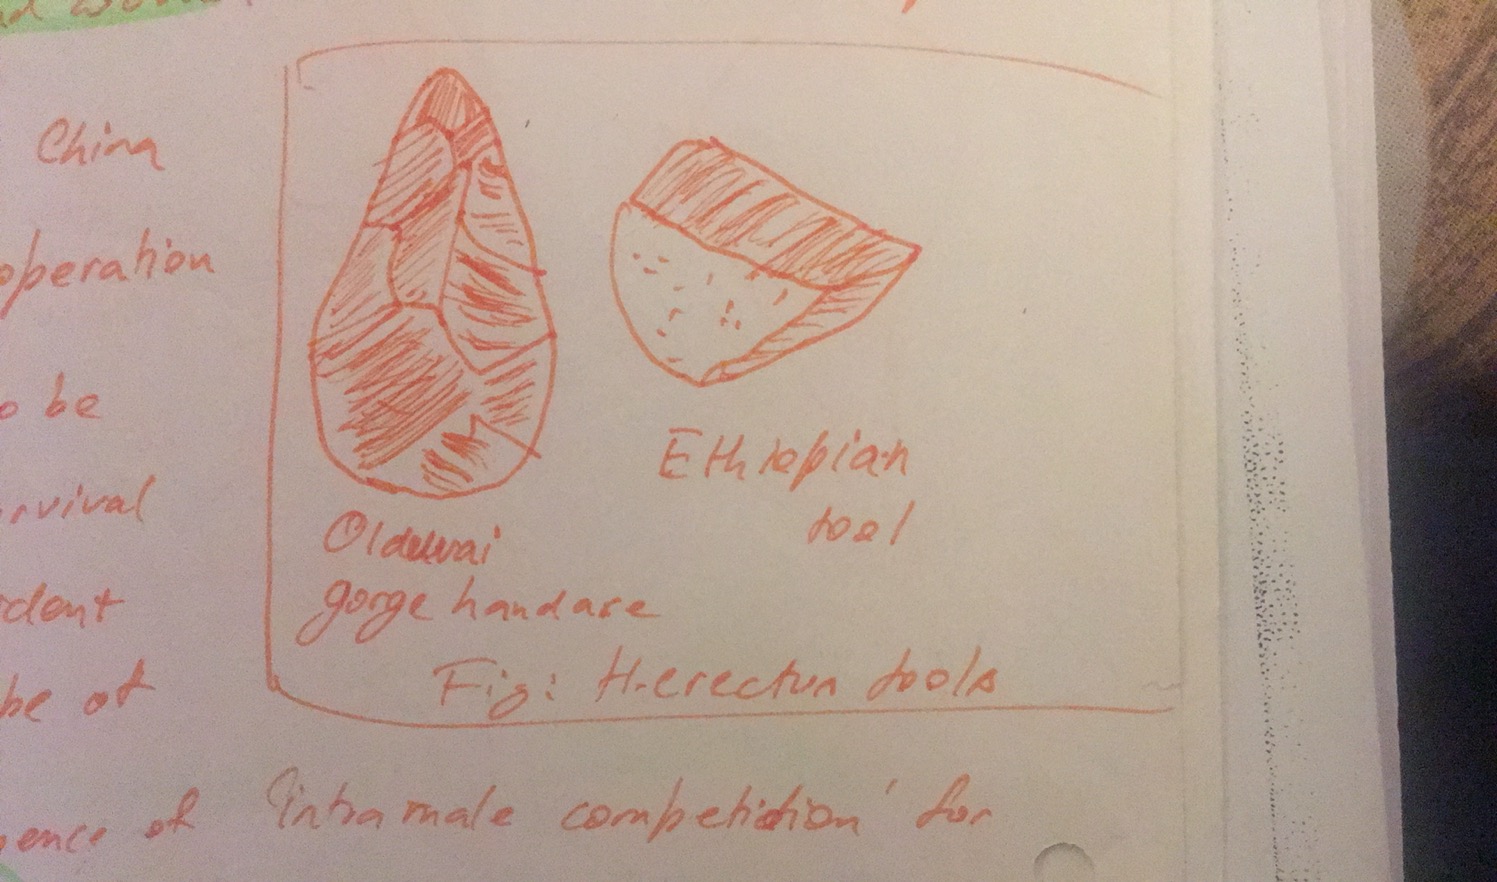 China
operation
o be
rvival
dent
be of
Oldewai
gorge handaxe
Ethiopian
tool
Fig: H.erectus tools
gence of 'intra male competition' for